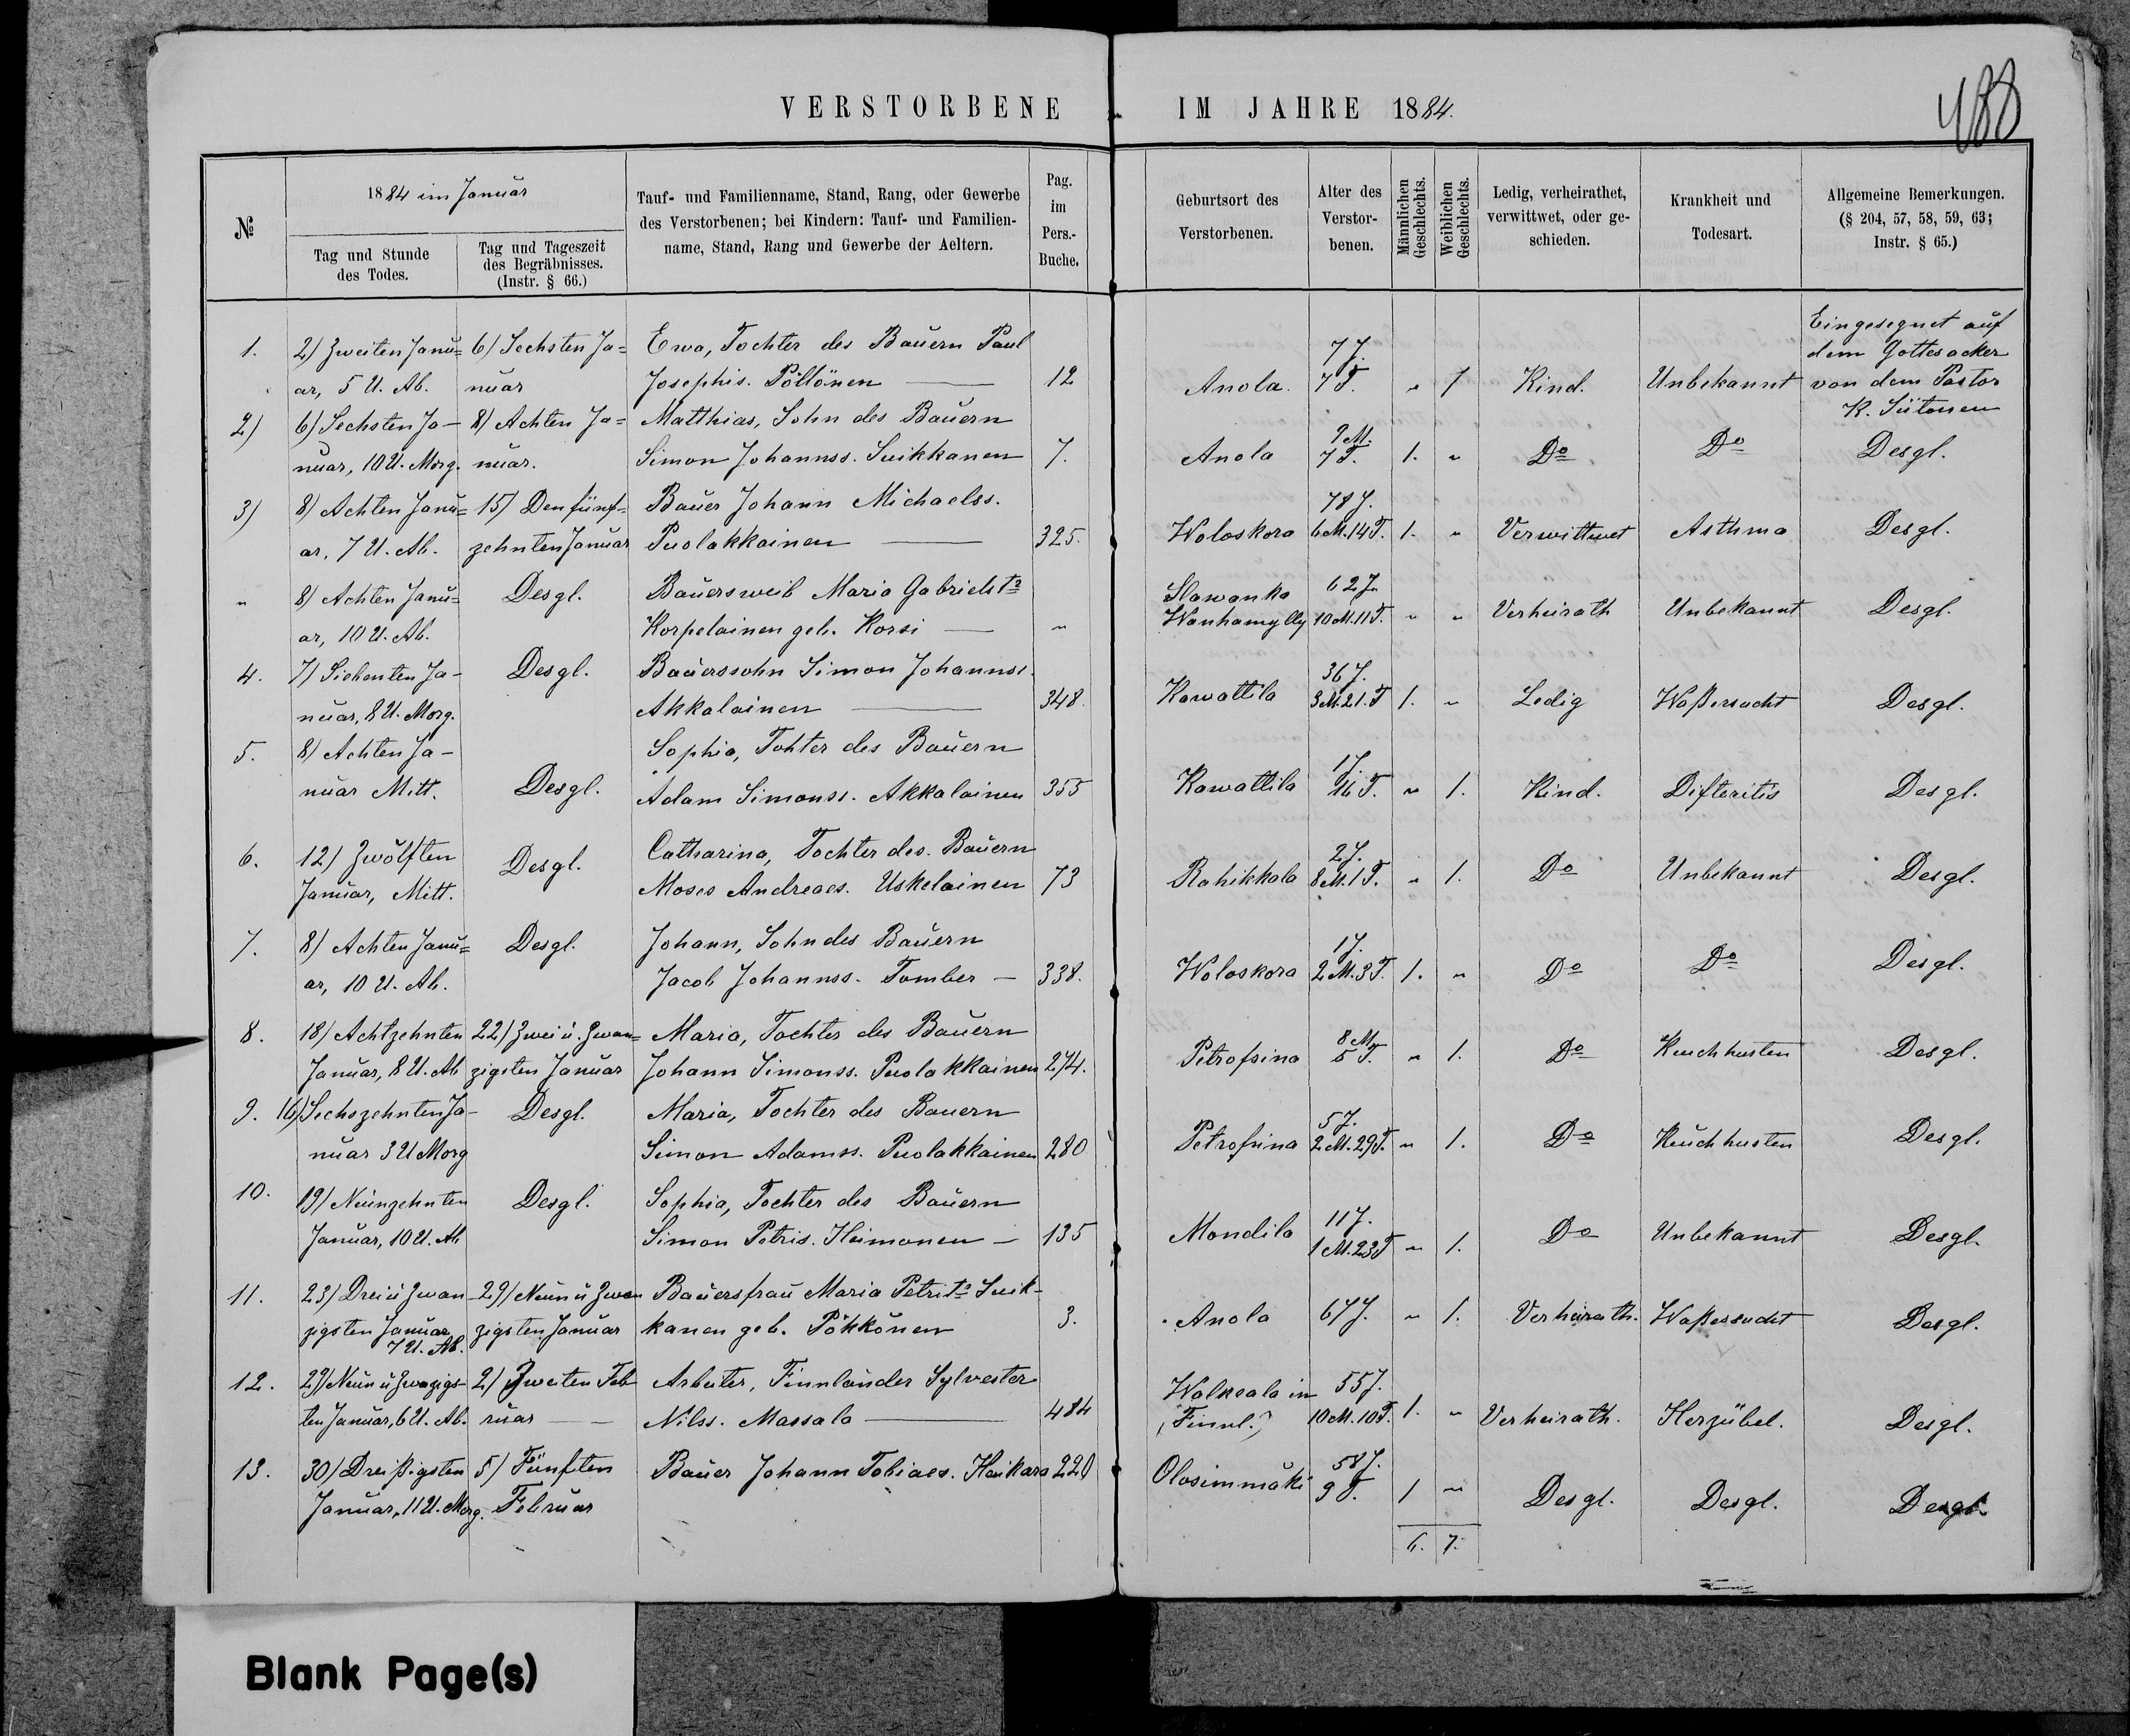 VERSTORBENE IM JAHRE 1884.
488
№
1884 im Januar
Tag und Stunde
des Todes.
Tag und Tageszeit
des Begräbnisses.
(Instr. § 66.)
Tauf- und Familienname, Stand, Rang, oder Gewerbe
des Verstorbenen; bei Kindern: Tauf- und Familien-
name, Stand, Rang und Gewerbe der Aeltern.
Pag.
im
Pers.-
Buche.
Geburtsort des
Verstorbenen.
Alter des
Verstor-
benen.
Männlichen
Geschlechts.
Weiblichen
Geschlechts.
Ledig, verheirathet,
verwittwet, oder ge-
schieden.
Krankheit und
Todesart.
Allgemeine Bemerkungen.
(§ 204, 57, 58, 59, 63;
Instr. § 65.)
Eingesegnet auf
1. 2) Zweiten Janu= 6) Sechsten Ja= Ewa, Tochter des Bauern Paul 7 J. dem Gottesacker
ar, 5 U. Ab. nuar Josephis. Pöllönen — 12 Anola. 7 T. „ 1 Kind. Unbekannt von dem Pastor
K. Siitonen
2) 6) Sechsten Ja- 8) Achten Ja= Matthias, Sohn des Bauern 9 M.
nuar, 10 U. Morg. nuar. Simon Johannss. Suikkanen 7. Anola 7 T. 1. „ Do Do Desgl.
3) 8) Achten Janu= 15) Den fünf- Bauer Johann Michaelss. 78 J.
ar, 7 U. Ab. zehnten Januar Puolakkainen — 325. Woloskora 6 M. 14 T. 1. „ Verwittwet Asthma Desgl.
„ 8) Achten Janu= Desgl. Bauersweib Maria Gabrielst. Slawanka 62 J.
ar, 10 U. Ab. Korpelainen geb. Korsi — „ Wanhamylly 10 M. 11 T. „ „ Verheirath Unbekannt Desgl.
4. 7) Siebenten Ja- Desgl. Bauerssohn Simon Johannss. 36 J.
nuar, 8 U. Morg. Akkalainen — 348. Kawattila 3 M. 21. T 1. „ Ledig Waßersucht Desgl.
5. 8) Achten Ja- Sophia, Tohter des Bauern 1 J.
nuar Mitt. Desgl. Adam Simonss. Akkalainen 355 Kawattila 16 T. „ 1. Kind. Difteritis Desgl.
6. 12) Zwölften Desgl. Catharina, Tochter des. Bauern 2 J.
Januar, Mitt. Moses Andreaes. Uskelainen 73 Rahikkala 8 M. 1 T. „ 1. Do Unbekannt Desgl.
7. 8) Achten Janu= Desgl. Johann, Sohn des Bauern 1 J.
ar, 10 U. Ab. Jacob Johannss. Tomber — 338. Woloskora 2 M. 3 T. 1. „ Do Do Desgl.
8. 18) Achtzehnten 22) Zwei u. Zwan= Maria, Tochter des Bauern 8 M.
Januar, 8 U. Ab zigsten Januar Johann Simonss. Puolakkainen 274. Petrofsina 5 T. „ 1. Do Keuchhusten Desgl.
9. 16) Sechszehnten Ja- Desgl. Maria, Tochter des Bauern 5 J.
nuar 3 U Morg Simon Adamss. Puolakkainen 280 Petrofsina 2 M. 29 T. „ 1. Do Keuchhusten Desgl.
10. 19) Neunzehnten Desgl. Sophia, Tochter des Bauern 11 J.
Januar, 10 U. Ab Simon Petris. Heimonen — 135 Mondila 1 M. 23 T „ 1. Do Unbekannt Desgl.
11. 23) Drei u Zwan- 29) Neun u Zwan Bauersfrau Maria Petrist. Suik-
zigsten Januar zigsten Januar kanen geb. Pökkönen 3. Anola 67 J. „ 1. Verheirath. Waßersucht Desgl.
7 U. Ab.
12. 29) Neun u Zwazigs- 2) Zweiten Feb Arbeiter, Finnländer Sylvester Walkeala in 55 J.
ten Januar, 6 U. Ab. ruar — Nilss. Massala — 484 (Finnl.) 10 M. 10 T. 1. „ Verheirath. Herzübel. Desgl.
13. 30) Dreißigsten 5) Fünften Bauer Johann Tobiaes. Haikara 220 Olosimmäki 58 J.
Januar, 11 U. Morg. Februar 9 T. 1 „ Desgl. Desgl. Desgl.
6. 7.
Blank Page(s)